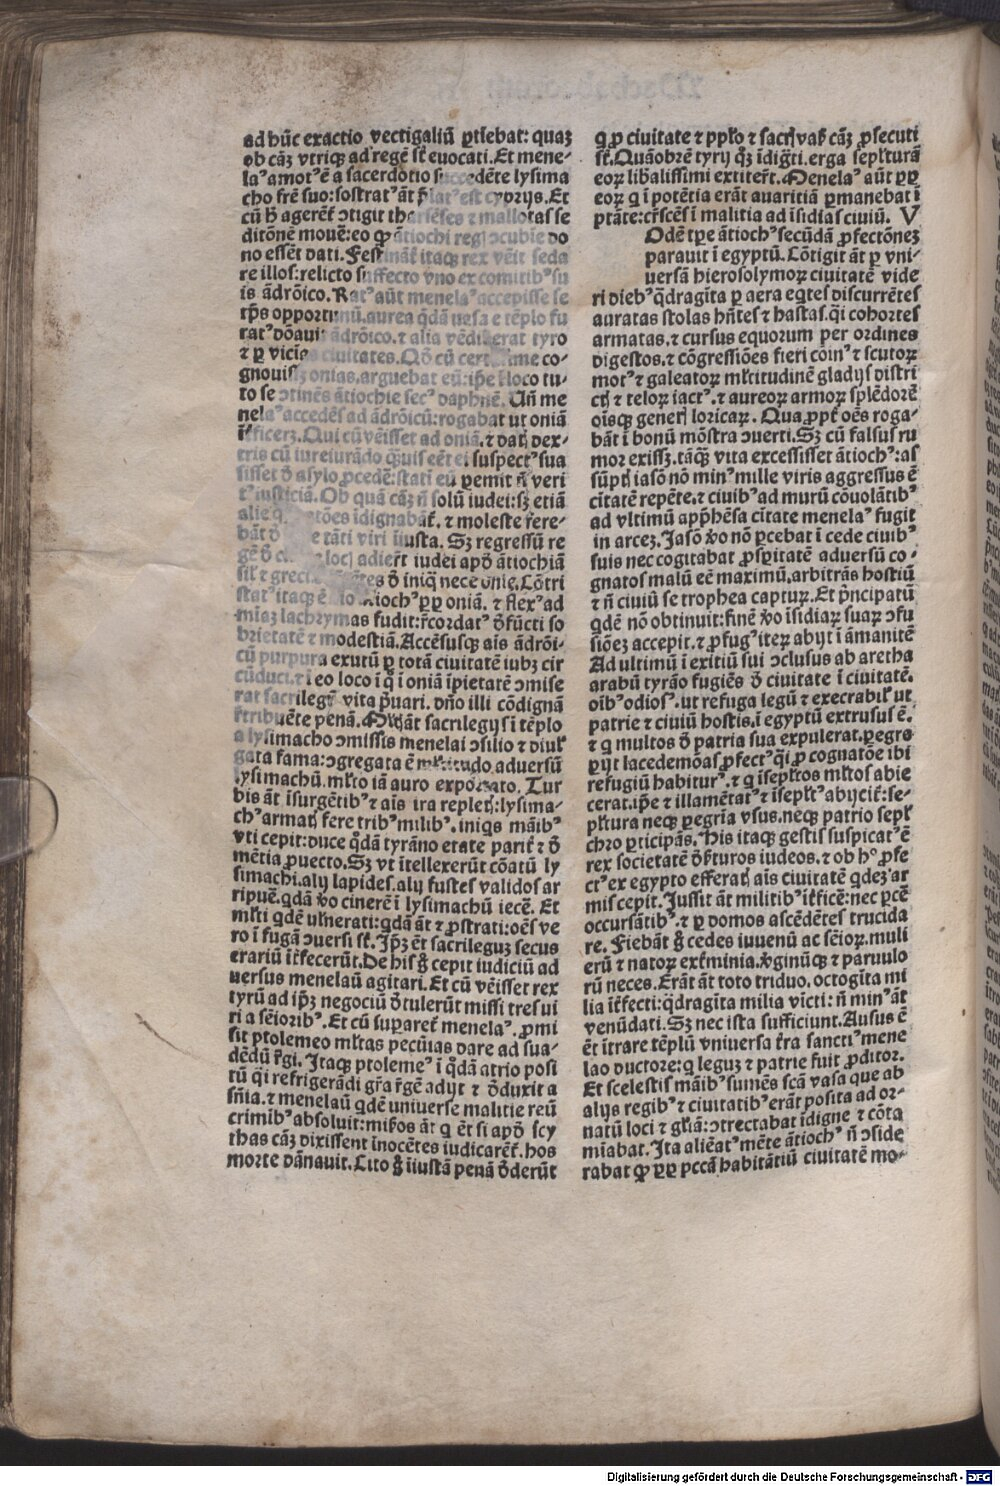 ad hūc exactio vectigaliū ꝑtīebat: quaꝫ
ob cāꝫ vtriqꝫ ad regē sꝉ euocati. Et mene-
la⁹ amot⁹ ē a sacerdotio succedēte lysima
cho frē suo: sostrat⁹ āt plat⁹ est cyprijs. Et
cū h̄ agerēt ↄtigit tharsēses ⁊ mallotas se
ditōnē mouē: eo ꝙ antiochi regꝭ ↄcubīe do
no essēt dati. Festināt itaqꝫ rex vēit seda
re illos: relicto suffecto vno ex comitib⁹ su
is ādrōico. Rat⁹ aūt menela⁹ accepisse se
tp̄s opportunū. aurea qdā vasa e tēplo fu
rat⁹ dōauit ādrōico. ⁊ alia vēdiderat tyro
⁊ ꝑ vicīas ciuitates. Qd̄ cū certissime co-
gnouissꝫ onias. arguebat eū: ip̄e ī loco tu-
to se ↄtinēs ātiochie sec⁹ daphnē. Un̄ me
nela⁹ accedēs ad ādrōicū: rogabat ut oniā
īt̄ficerꝫ. Qui cū vēisset ad oniā. ⁊ datꝭ dex-
tris cū iureiurādo qͣuis eēt ei suspect⁹ sua
sisset d̄ asylo ꝓcedē: statī eū ꝑemit n̄ veri
t⁹ iusticiā. Ob quā cāꝫ n̄ solū iudei: sꝫ etiā
alie natōes īdignabāt̄. ⁊ moleste fere-
bāt d̄ nece tāti viri īiusta. Sꝫ regressū re
gē d̄ cilicie locꝭ adierūt iudei apd̄ ātiochiā
sił ⁊ greci: ↄq̄rētes d̄ iniq̄ nece onie. Cōtri
stat⁹ itaqꝫ ē aīo ātioch⁹ ꝓpꝑ oniā. ⁊ flex⁹ ad
mīaꝫ lachrymas fudit: rēcordat⁹ d̄fūcti so
brietatē ⁊ modestiā. Accēsusqꝫ aīs ādrōi-
cū purpura exutū ꝑ totā ciuitatē iubꝫ cir
cūduci. ⁊ ī eo loco ī q̄ ī oniā īpietatē ↄmise
rat sacrilegū vita p̄uari. dn̄o illi cōdignā
rētribuēte penā. Mltꝭ āt sacrilegijs ī tēplo
a lysimacho ↄmissis menelai ↄsilio ⁊ diuł
gata fama: ↄgregata ē mltitudo aduersū
lysimachū. mlto iā auro exportato. Tur
bis āt īsurgētib⁹ ⁊ aīs ira repletꝭ: lysima-
ch⁹ armatꝭ fere trib⁹ milib⁹. iniqs māib⁹
vti cepit: duce qdā tyrāno etate parit̄ ⁊ d̄
mētia ꝓuecto. Sꝫ vt ītellexerūt cōatū ly
simachi. alij lapides. alij fustes validos ar
ripuē. qdā v̄o cinerē ī lysimachū iecē. Et
mlti qdē vlnerati: qdā āt ⁊ ꝓstrati: oēs ve
ro ī fugā ↄuersi sꝉ. Ip̄ꝫ ēt sacrileguꝫ secus
erariū īt̄fecerūt. De his g̊ cepit iudiciū ad
uersus menelaū agitari. Et cū vēisset rex
tyrū ad ip̄ꝫ negociū d̄tulerūt missi tres ui
ri a sēiorib⁹. Et cū suꝑaret̄ menela⁹. ꝓmi
sit ptolemeo mltas pecūias dare ad sua-
dēdū r̄gi. Itaqꝫ ptoleme⁹ ī qdā atrio posi
tū q̄i refrigerādi gr̄a r̄gē adijt ⁊ d̄duxit a
sn̄ia. ⁊ menelaū qdē uniuerse malitie reū
crimīb⁹ absoluit: mis̄os āt q̄ ēt si apd̄ scy
thas cāꝫ dixissent īnocētes iudicarēt̄. hos
morte dānauit. Cito g̊ īiustā penā d̄derūt
q̄ ꝓ ciuitate ⁊ ppło ⁊ sacrꝭ vasꝭ cāꝫ ꝓsecuti
sꝉ. Quāobrē tyrij qꝫ īdigti. erga sepłturā
eoꝝ libalissimi extiterūt. Menela⁹ aūt ꝓpꝑ
eoꝝ q̄ ī potētia erāt auaritiā ꝑmanebat ī
ptāte: cr̄scēs ī malitia ad īsidias ciuiū. V
Odē tꝑe ātioch⁹ secūdā ꝓfectōneꝫ
parauit ī egyptū. Cōtigit āt ꝑ vni-
uersā hierosolymoꝝ ciuitatē vide
ri dieb⁹ qdragīta ꝑ aera eqtes discurrētes
auratas stolas hn̄tes ⁊ hastas. q̄i cohortes
armatas. ⁊ cursus equorum per ordines
digestos. ⁊ cōgressiōes fieri comin⁹ ⁊ scutoꝝ
mot⁹ ⁊ galeatoꝝ mltitudinē gladijs distri
ctꝭ ⁊ teloꝝ iact⁹. ⁊ aureoꝝ armoꝝ splēdorē
oīsqꝫ generꝭ loricaꝝ. Quaꝓpt̄ oēs roga-
bāt ī bonū mōstra ↄuerti. Sꝫ cū falsus ru
mor exissꝫ. tāqͣꝫ vita excessisset ātioch⁹: as
sūptꝭ iasō nō min⁹ mille viris aggressus ē
cītatē repēte. ⁊ ciuib⁹ ad murū cōuolātib⁹
ad vltimū apphēsa cītate menela⁹ fugit
in arceꝫ. Jasō v̄o nō ꝑcebat ī cede ciuib⁹
suis nec cogitabat ꝓsperitatē aduersū co-
gnatos malū eē maximū. arbitrās hostiū
⁊ n̄ ciuiū se trophea capturꝫ. Et p̄ncipatū
qdē nō obtinuit: finē v̄o īsidiaꝝ suaꝝ ↄfu
siōeꝫ accepit. ⁊ ꝓfug⁹ iteꝝ abijt ī āmanitē
Ad ultimū ī exitiū sui ↄclusus ab aretha
arabū tyrāo fugiēs d̄ ciuitate ī ciuitatē.
oīb⁹ odios⁹. ut refuga legū ⁊ execrabił ut
patrie ⁊ ciuiū hostis. ī egyptū extrusus ē.
⁊ q̄ multos d̄ patria sua expulerat. ꝑegre
ꝑijt lacedemōas ꝓfect⁹ q̄i ꝓ cognatōe ibi
refugiū habitur⁹. ⁊ q̄ īsepłtos mltos abie
cerat. ip̄e ⁊ illamētat⁹ ⁊ īsepłt⁹ abijcit̄: se-
płtura neqꝫ ꝑegria vsus. neqꝫ patrio sepł
chro ꝑticipās. His itaqꝫ gestis suspicat⁹ ē
rex societatē d̄s̄turos iudeos. ⁊ ob hᵒ ꝓfe
ct⁹ ex egypto efferatꝭ aīs ciuitatē qdeꝫ ar
mis cepit. Jussit āt militib⁹ īt̄ficē: nec ꝑcē
occursātib⁹. ⁊ ꝑ domos ascēdētes trucida
re. Fiebāt g̊ cedes iuuenū ac sēioꝝ. muli
erū ⁊ natoꝝ extminia. v̄ginūqꝫ ⁊ paruulo
rū neces. Erāt āt toto triduo. octogīta mi
lia īt̄fecti: qdragīta milia vīcti: n̄ min⁹ āt
venūdati. Sꝫ nec ista sufficiunt. Ausus ē
ēt ītrare tēplū vniuersa t̄ra sancti⁹ mene
lao ductore: q̄ leguꝫ ⁊ patrie fuit ꝓditor.
Et scelestis māib⁹ sumēs scā vasa que ab
alijs regib⁹ ⁊ ciuitatib⁹ erāt posita ad or-
natū loci ⁊ głiā: ↄtrectabat īdigne ⁊ cōta
mīabat. Ita aliēat⁹ mēte ātioch⁹ n̄ ↄside
rabat ꝙ ꝓpꝑ pccā habitātiū ciuitatē mo-
Digitalisierung gefördert durch die Deutsche Forschungsgemeinschaft - DFG